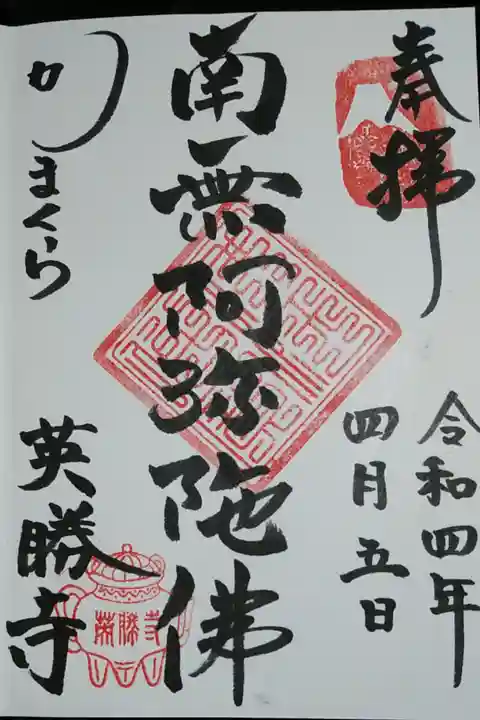 奉拝
令和四年
四月五日
南無阿弥陀佛
かまくら
英勝寺
英勝寺